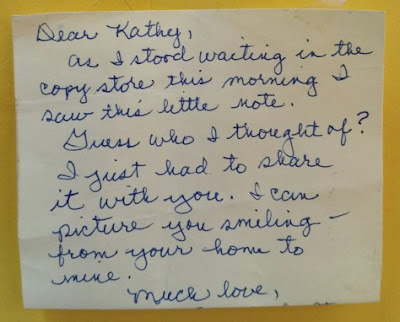 Dear Kathy,
as I stood waiting in the
copy store this morning I
saw this little note.
Guess who I thought of?
I just had to share
it with you. I can
picture you smiling -
from your home to
mine.
Much love,